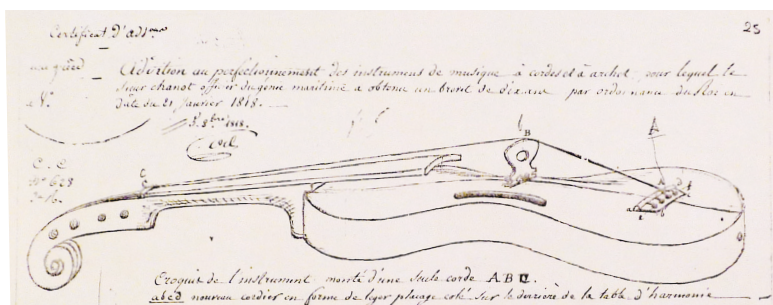 25
Certificat d'adson
Addition au perfectionnement des instrumens de musique à cordes et à archet, pour lequel le
Sieur chanot officier du génie maritime a obtenu un brevet de dix ans par ordonnance du Roi en
date du 21 Janvier 1818.
1818.
C. C
N° 628
B
A
C
Croquis de l'instrument monté d'une seule corde ABC.
abcd nouveau cordier en forme de leger placage collé sur le derrière de la table d'harmonie